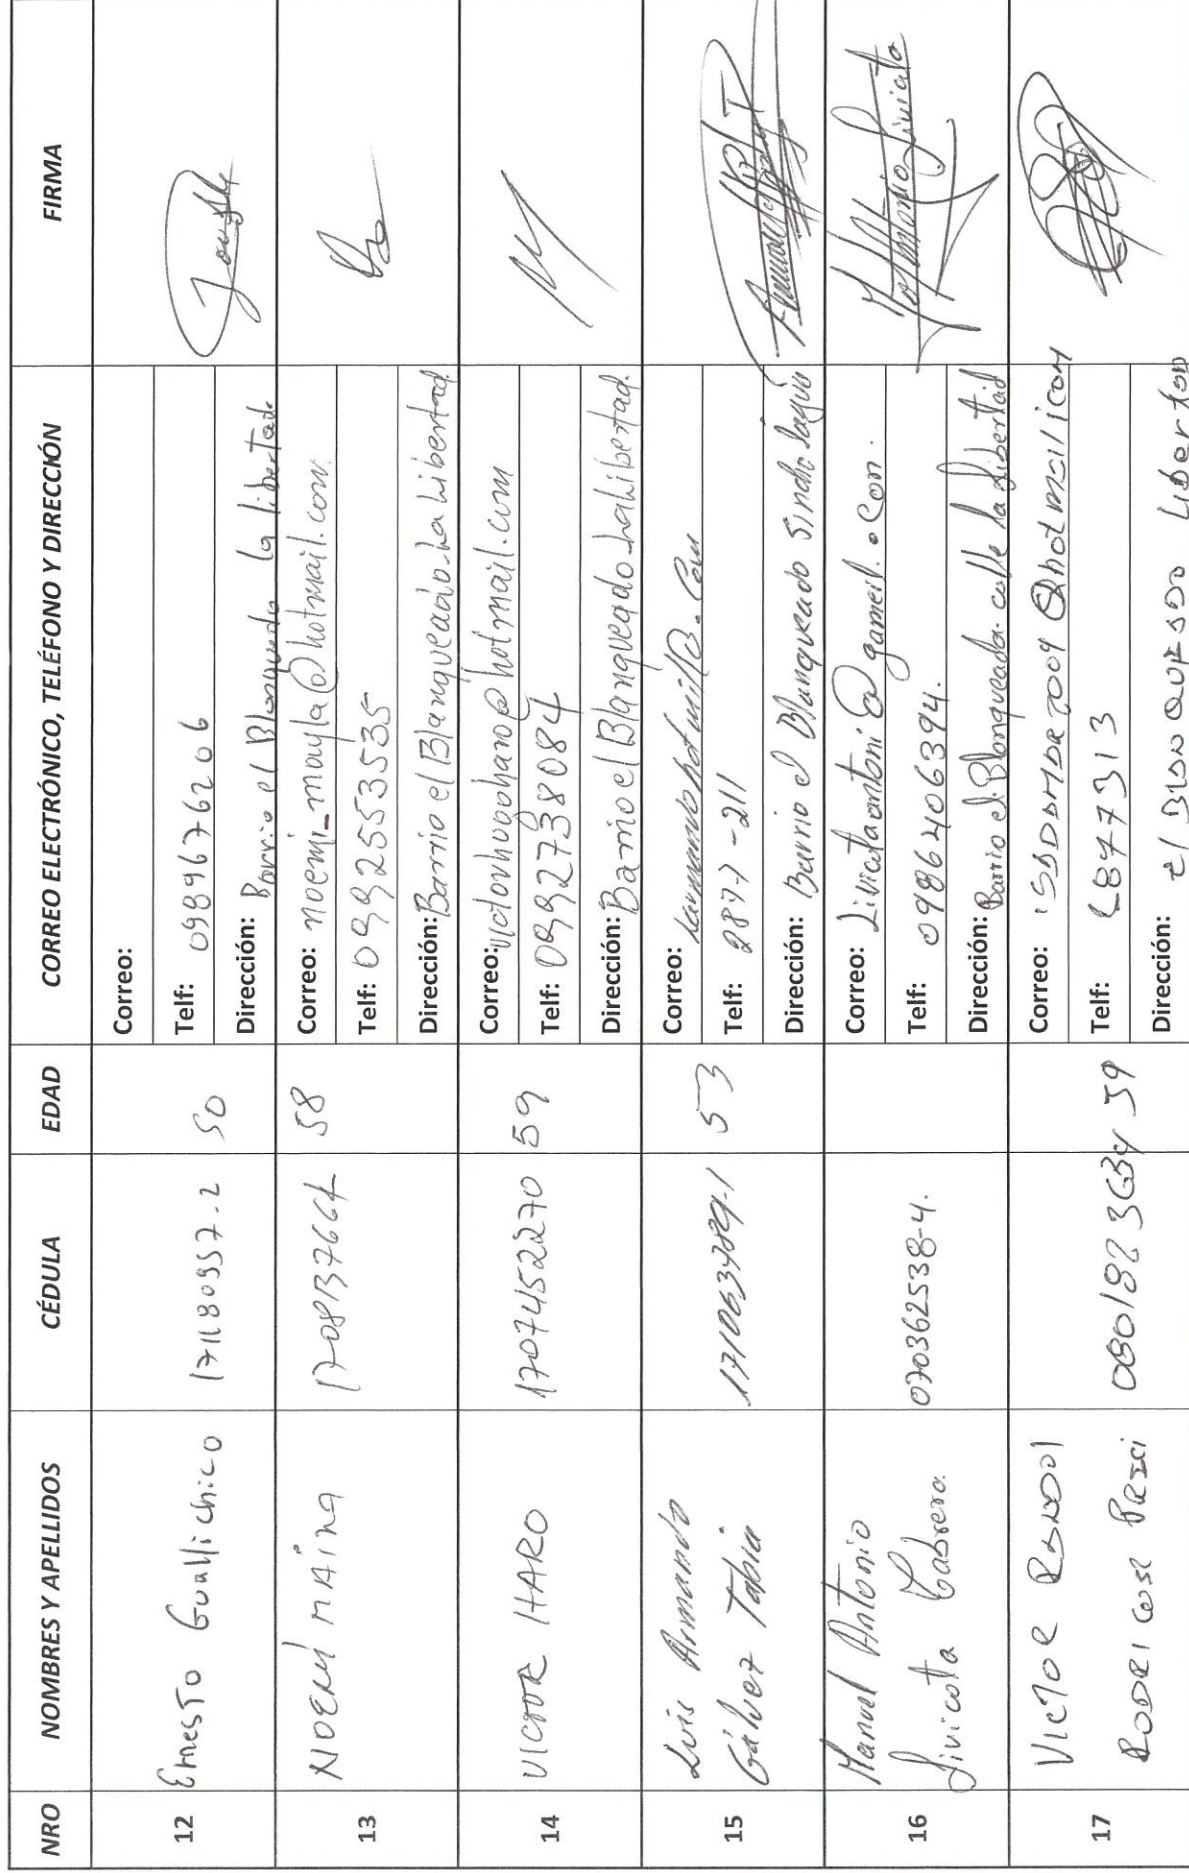 NRO NOMBRES Y APELLIDOS CÉDULA EDAD CORREO ELECTRÓNICO, TELÉFONO Y DIRECCIÓN FIRMA
12 Ernesto Guallichico 171180957-2 50
Correo:
Telf: 0989676206
Dirección: Barrio el Blanqueado la libertad
13 NOEMI MAINA 1708137664 58
Correo: noemi_mayla@hotmail.com
Telf: 0992553535
Dirección: Barrio el Blanqueado La Libertad
14 VICTOR HARO 1707452270 59
Correo: victorhugoharo@hotmail.com
Telf: 0992738084
Dirección: Barrio el Blanqueado La libertad.
15 Luis Armando
Gálvez Tapia 171063789-1 53
Correo:
Telf: 2877-211
Dirección: Barrio el Blanqueado
16 Manuel Antonio
Livicota Cabrera. 070362538-4.
Correo: Livicotaantoni@gameil.con.
Telf: 0986406394.
Dirección: Barrio el Blanqueada calle la Libertad
17 VICTOR
0801823634 59
Correo:
Telf: 2877313
Dirección: el Blanqueado Libertad